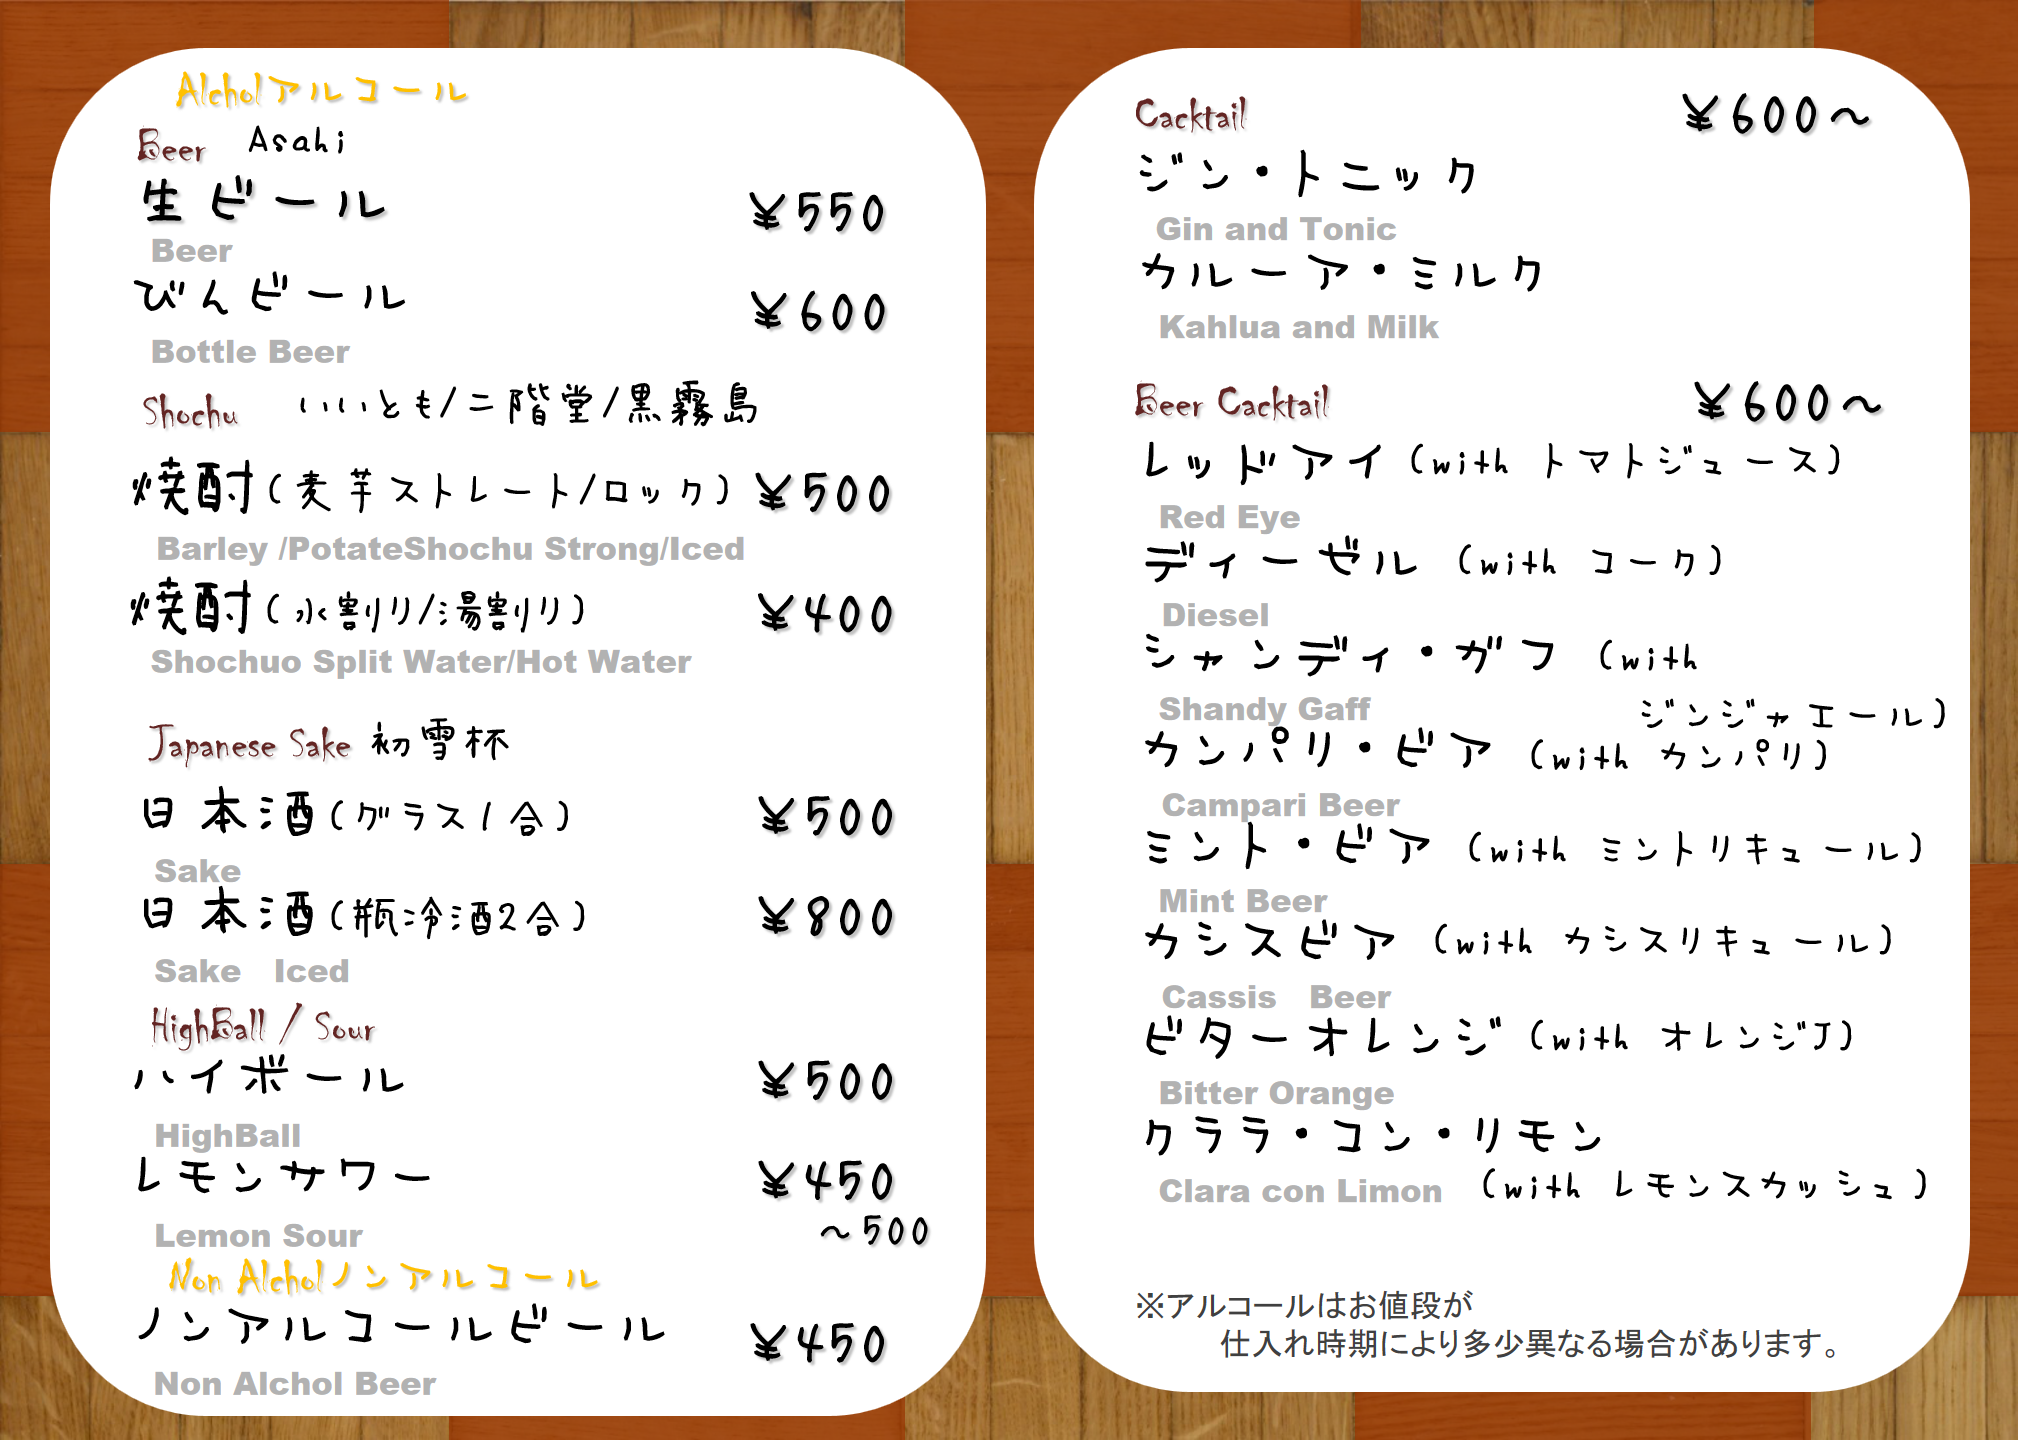 Alcholアルコール
Beer Asahi
生ビール ¥550
Beer
びんビール ¥600
Bottle Beer
Shochu いいとも/二階堂/黒霧島
焼酎(麦芋ストレート/ロック) ¥500
Barley /PotateShochu Strong/Iced
焼酎(水割り/湯割り) ¥400
Shochuo Split Water/Hot Water
Japanese Sake 初雪杯
日本酒(グラス1合) ¥500
Sake
日本酒(瓶冷酒2合) ¥800
Sake Iced
HighBall / Sour
ハイボール ¥500
HighBall
レモンサワー ¥450
～500
Lemon Sour
Non Alcholノンアルコール
ノンアルコールビール ¥450
Non Alchol Beer
Cacktail ¥600～
ジン・トニック
Gin and Tonic
カルーア・ミルク
Kahlua and Milk
Beer Cacktail ¥600～
レッドアイ(with トマトジュース)
Red Eye
ディーゼル (with コーク)
Diesel
シャンディ・ガフ (with
Shandy Gaff ジンジャエール)
カンパリ・ビア (with カンパリ)
Campari Beer
ミント・ビア (with ミントリキュール)
Mint Beer
カシスビア (with カシスリキュール)
Cassis Beer
ビターオレンジ (with オレンジJ)
Bitter Orange
クララ・コン・リモン
Clara con Limon (with レモンスカッシュ)
※アルコールはお値段が
仕入れ時期により多少異なる場合があります。